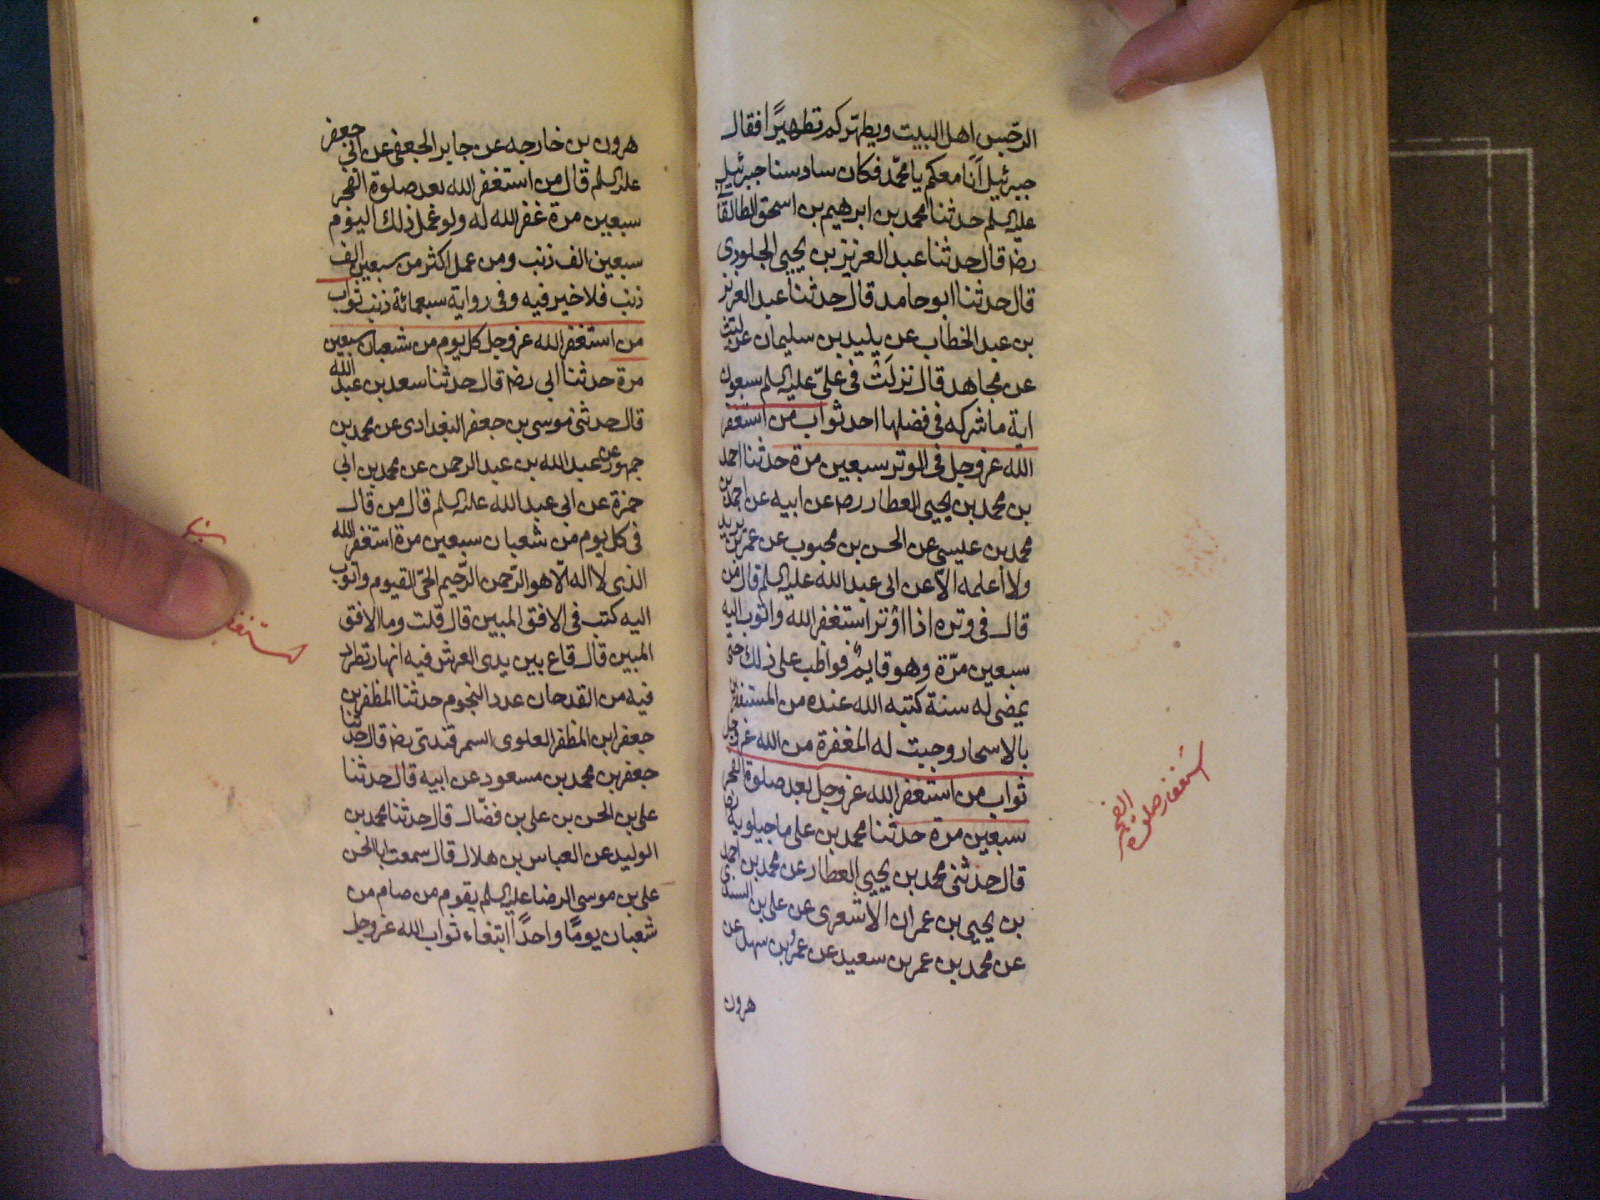 الرجس اهل البيت ويطهركم تطهيرًا فقال
جبرئيل أنا معكم يا محمد فكان سادسنا جبرئيل
عليه السلم حدثنا محمد بن ابرهيم بن اسحق الطالقانى
رضه قال حدثنا عبد العزيز بن يحيى الجلودى
قال حدثنا ابو حامد قال حدثنا عبد العزيز
بن عبد الخطاب عن يليد بن سليمان عن ليث
عن مجاهد قال نزلت فى علىّ عليه السلم سبعون
اية ما شركه فى فضلها احد ثواب من استغفر
الله عز وجل فى الوتر سبعين مرة حدثنا احمد
بن محمد بن يحيى العطار رضه عن ابيه عن احمد بن
محمد بن عيسى عن الحسن بن محبوب عن عمر بن يزيد
ولا اعلمه الاّ عن ابى عبد الله عليه السلم قال من
قال فى وتره اذا اوتر استغفر الله واتوب اليه
سبعين مرّة وهو قايم فواظب على ذلك حتى
يمضى له سنة كتبه الله عنده من المستغفرين
بالاسحار وجبت له المغفرة من الله عز وجل
ثواب من استغفر الله عز وجل بعد صلوة الفجر
سبعين مرة حدثنا محمد بن على ماجيلويه رضه
قال حدثنى محمد بن يحيى العطار عن محمد بن احمد
بن يحيى بن عمران الاشعرى عن على بن السندى
عن محمد بن عمر بن سعيد عن عمرو بن سهل عن
هرون
استغفار صلوة
الفجر
هرون بن خارجه عن جابر الجعفى عن ابى جعفر
عليه السلم قال من استغفر الله بعد صلوة الفجر
سبعين مرة غفر الله له ولو عمل ذلك اليوم
سبعين الف ذنب ومن عمل اكثر من سبعين الف
ذنب فلا خير فيه وفى رواية سبعمائة ذنب ثواب
من استغفر الله عز وجل كل يوم من شعبان سبعين
مرة حدثنا ابى رضه قال حدثنا سعد بن عبد الله
قال حدثنى موسى بن جعفر البغدادى عن محمد بن
جمهور عن عبد الله بن عبد الرحمن عن محمد بن ابى
حمزة عن ابى عبد الله عليه السلم قال من قال
فى كل يوم من شعبان سبعين مرة استغفر الله
الذى لا اله الّا هو الرّحمن الرّحيم الحىّ القيوم واتوب
اليه كتب فى الافق المبين قال قلت وما الافق
المبين قال قاع بين يدى العرش فيه انهار تطرد
فيه من القدحان عدد النجوم حدثنا المظفر بن
جعفر ابن المظفر العلوى السمرقندى رضه قال حدثنا
جعفر بن محمد بن مسعود عن ابيه قال حدثنا
على بن الحسن بن على بن فضّال قال حدثنا محمد بن
الوليد عن العباس بن هلال قال سمعت ابا الحسن
على بن موسى الرضا عليه السلم يقوم من صام من
شعبان يومًا واحدًا ابتغاء ثواب الله عز وجل